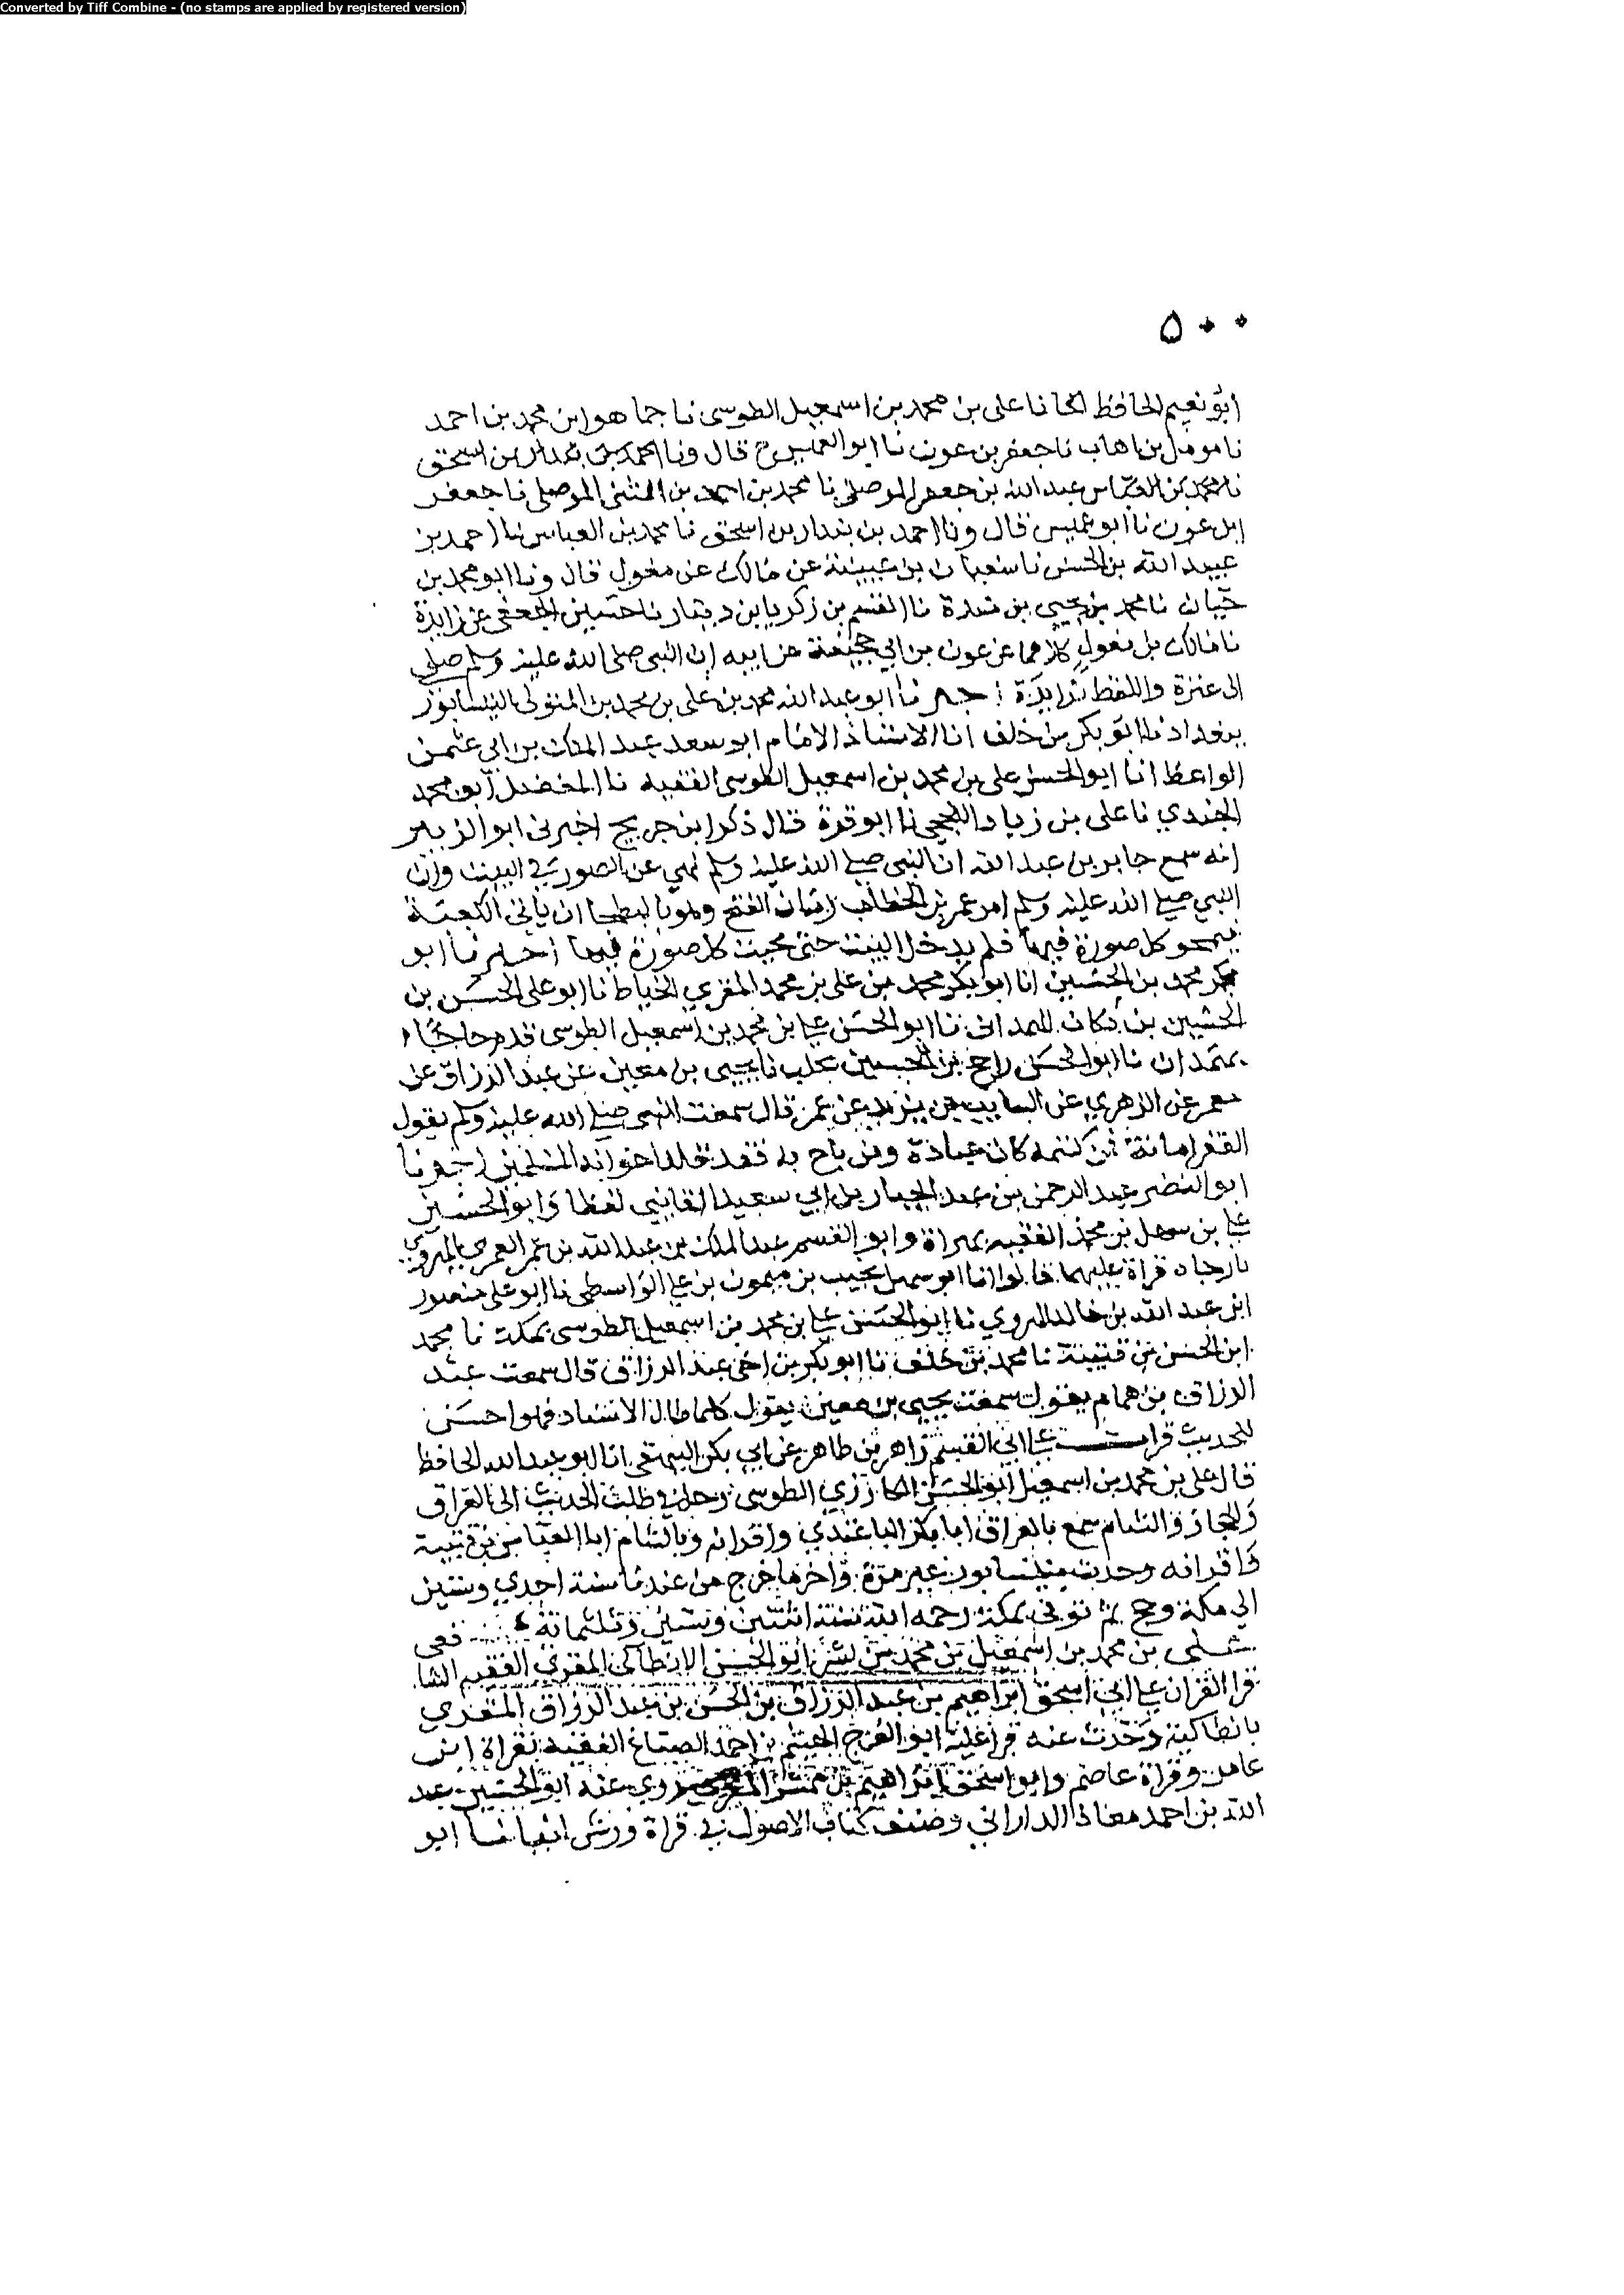 Converted by Tiff Combine - (no stamps are applied by registered version)
٥٠٠
ابو نعيم الحافظ نا علي بن محمد بن اسمعيل الطوسي نا جماهر ابن محمد بن احمد
نا مومل بن اهاب نا جعفر بن عون نا ابو العميس ح قال ونا احمد بن بندار بن اسحق
نا محمد بن العباس عبد الله بن جعفر الموصلي نا محمد بن احمد بن المثنى الموصلي نا جعفر
ابن عون نا ابو عميس قال ونا احمد بن بندار بن اسحق نا محمد بن العباس نا احمد بن
عبيد الله بن الحسن نا سفيان بن عيينة عن مالك عن مغول قال ونا ابو محمد بن
حيان نا محمد بن يحيى بن مندة نا القسم بن زكريا بن دينار نا حسين الجعفي عن زايدة
نا مالك بن مغول كلاهما عن عون بن ابي جحيفة عن ابيه ان النبي صلى الله عليه وسلم صلى
الى عنزة واللفظ لزايدة اخبرنا ابو عبد الله محمد بن علي بن محمد بن المتولي النيسابوري
ببغداد نا ابو بكر بن خلف انا الاستاذ الامام ابو سعد عبد الملك بن ابي عثمن
الواعظ انا ابو الحسن علي بن محمد بن اسمعيل الطوسي الفقيه نا المفضل ابو محمد
الجندي نا علي بن زياد اللحجي نا ابو قرة قال ذكر ابن جريج اخبرني ابو الزبير
انه سمع جابر بن عبد الله ان النبي صلى الله عليه وسلم نهى عن الصور في البيت وان
النبي صلى الله عليه وسلم امر عمر بن الخطاب زمان الفتح وهو بالبطحا ان ياتي الكعبة
فيمحو كل صورة فيها فلم يدخل البيت حتى محيت كل صورة فيها اخبرنا ابو
بكر محمد بن الحسين انا ابو بكر محمد بن علي بن محمد المقري الخياط نا ابو علي الحسن بن
الحسين بن حمكان الهمداني نا ابو الحسن علي بن محمد بن اسمعيل الطوسي قدم حاجا
بهمدان نا ابو الحسن راجح بن الحسين بحلب نا يحيى بن معين عن عبد الرزاق عن
معمر عن الزهري عن السايب بن يزيد عن عمر قال سمعت النبي صلى الله عليه وسلم يقول
الفقر امانة فمن كتمه كان عبادة ومن باح به فقد قلد اخوانه المسلمين اخبرنا
ابو النضر عبد الرحمن بن عبد الجبار بن ابي سعيد الفامي لفظا وابو الحسين
علي بن سهل بن محمد الفقيه بهراة وابو القسم عبد الملك بن عبد الله بن عمر العمري الهروي
بارجاه قراة عليهما قالوا انا ابو سهل نجيب بن ميمون بن علي الواسطي نا ابو علي منصور
ابن عبد الله بن خالد الهروي نا ابو الحسن علي بن محمد بن اسمعيل الطوسي بمكة نا محمد
ابن الحسن بن قتيبة نا محمد بن خلف نا ابو بكر بن اخي عبد الرزاق قال سمعت عبد
الرزاق بن همام يقول سمعت يحيى بن معين يقول كلما طال الاسناد فهو احسن
للحديث قرات على ابي القسم زاهر بن طاهر عن ابي بكر البيهقي انا ابو عبد الله الحافظ
قال علي بن محمد بن اسمعيل ابو الحسن الكارزي الطوسي رحل في طلب الحديث الى العراق
والحجاز والشام سمع بالعراق ابا بكر الباغندي واقرانه وبالشام ابا العباس بن قتيبة
واقرانه وحدث بنيسابور غير مرة واخر ما خرج من عندنا سنة احدى وستين
الى مكة وحج ثم توفي بمكة رحمه الله سنة اثنتين وستين وثلثمائة
علي بن محمد بن اسمعيل بن محمد بن بشر ابو الحسن الانطاكي المقري الفقيه الشافعي
قرا القران على ابي اسحق ابراهيم بن عبد الرزاق بن الحسن بن عبد الرزاق المقري
بانطاكية وحدث عنه قرا عليه ابو الفرج الهيثم بن احمد الصباغ الفقيه بقراة ابن
عامر وقراة عاصم وابو اسحق ابراهيم بن روى عنه ابو الحسين عبد
الله بن احمد معاذ الداراني وصنف كتاب الاصول في قراة ورش انبانا ابو